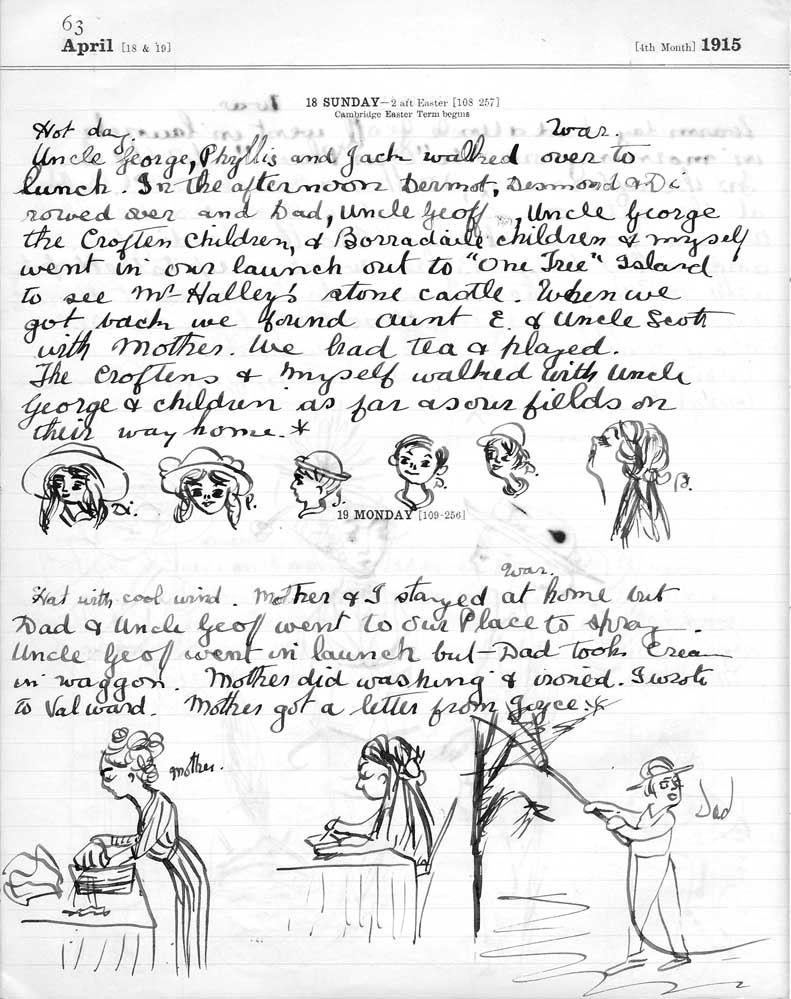 63
April [18 & 19] [4th Month] 1915
18 SUNDAY—2 aft Easter [108-257]
Cambridge Easter Term begins
Hot day. War.
Uncle George, Phyllis and Jack walked over to
lunch. In the afternoon Dermot, Desmond & Di
rowed over and Dad, Uncle Geoff, Uncle George
the Croften children, & Borradaile children & myself
went in our launch out to "One Tree" Island
to see Mr Halley's stone castle. When we
got back we found aunt E. & Uncle Scott
with Mother. We had tea & played.
The Croftens & myself walked with Uncle
George & children as far as our fields on
their way home.*
Di. P. J. D. D. B.
19 MONDAY [109-256]
War.
Hot with cool wind. Mother & I stayed at home but
Dad & Uncle Geoff went to our Place to spray.
Uncle Geoff went in launch but Dad took Cream
in waggon. Mother did washing & ironed. I wrote
to Val ward. Mother got a letter from Joyce.*
mother.
Dad